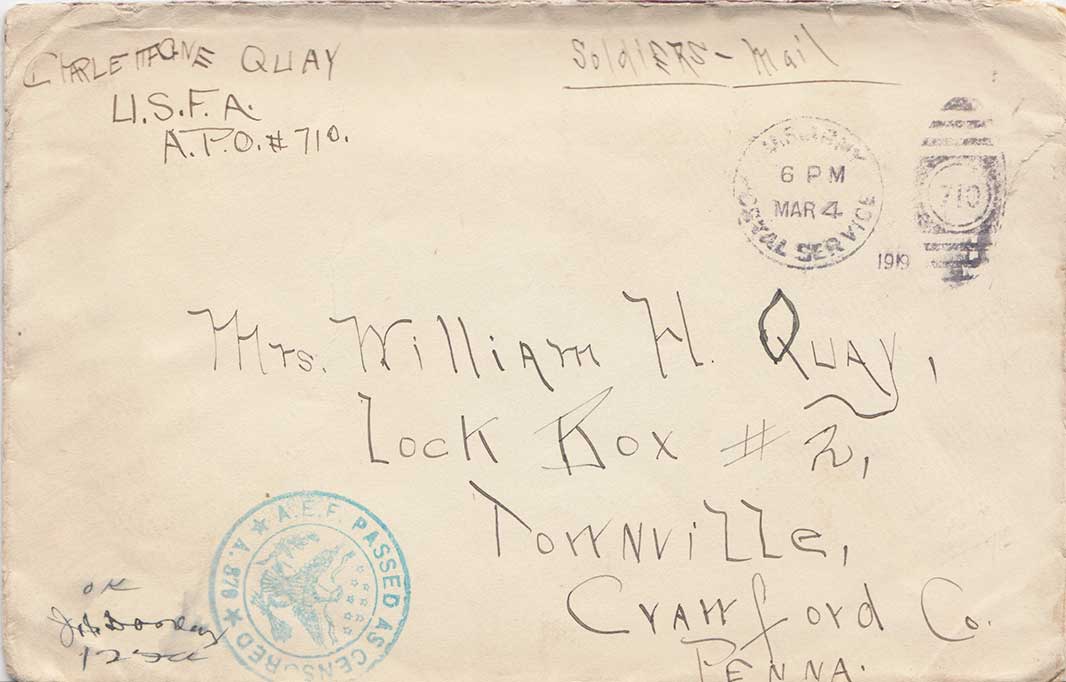 CHARLEMAGNE QUAY
U.S.F.A.
A.P.O. # 710.
Soldiers - Mail
U.S. ARMY
6 PM
MAR 4
POSTAL SERVICE
1919
710
Mrs. William H. Quay,
Lock Box # 2,
Townville,
Crawford Co.
PENNA.
A.E.F. PASSED AS CENSORED ★ A.878 ★
OK